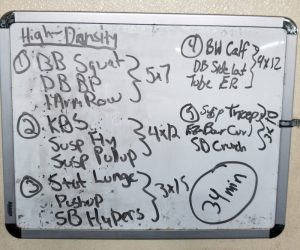 High-Density
① BB Squat
DB BP
1 Arm Row
5x7
② KBS
Susp Fly
Susp Pullup
4x12
③ Stat Lunge
Pushup
SB Hypers
3x15
④ BW Calf
DB Side Lat
Tube ER
4x12
⑤ Susp Tricep
EZ Bar Curl
SB Crunch
34 min